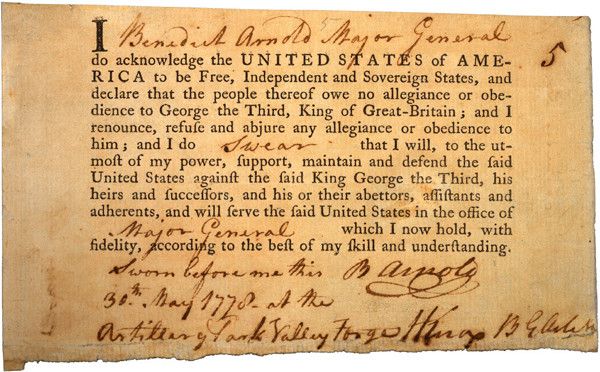 I Benedict Arnold Major General
do acknowledge the UNITED STATES of AME-
RICA to be Free, Independent and Sovereign States, and
declare that the people thereof owe no allegiance or obe-
dience to George the Third, King of Great-Britain; and I
renounce, refuſe and abjure any allegiance or obedience to
him; and I do Swear that I will, to the ut-
moſt of my power, ſupport, maintain and defend the ſaid
United States againſt the ſaid King George the Third, his
heirs and ſucceſſors, and his or their abettors, aſſiſtants and
adherents, and will ſerve the ſaid United States in the office of
Major General which I now hold, with
fidelity, according to the beſt of my ſkill and underſtanding.
Sworn before me this B Arnold
30th May 1778 at the
Artillery Park Valley Forge HKnox B G Artil
5